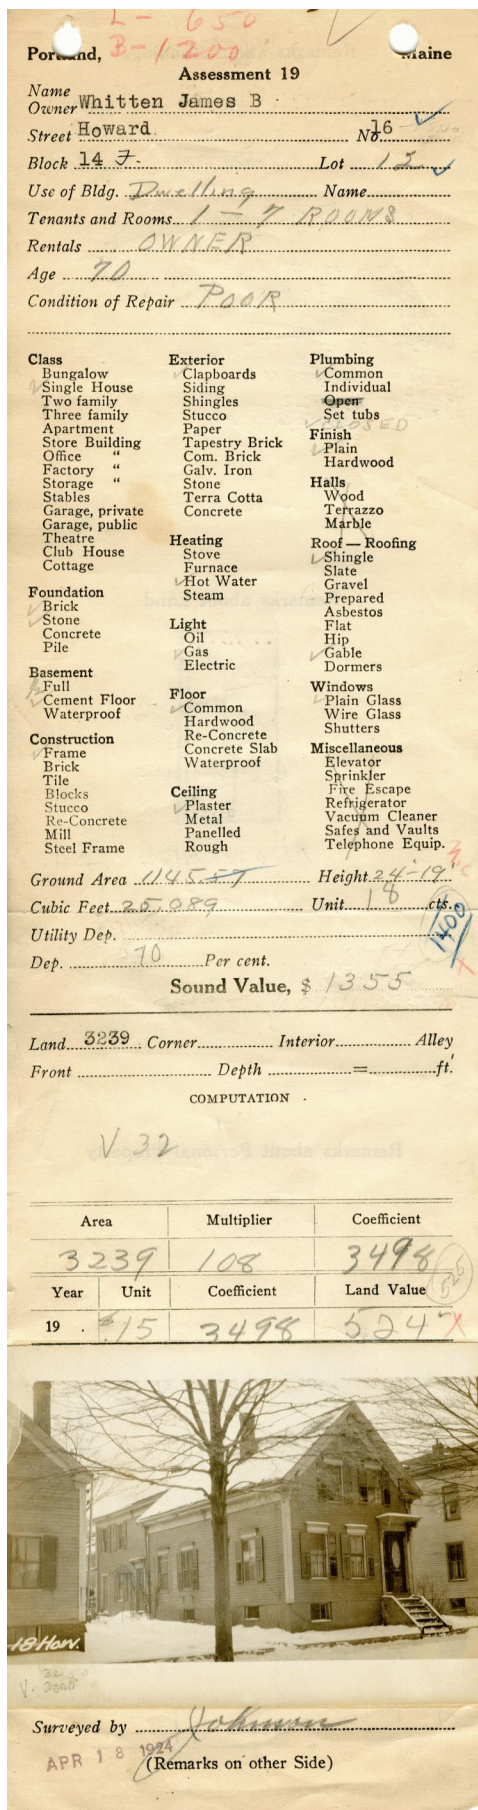 L - 650
B - 1200
Portland, Maine
Assessment 19
Name
Owner Whitten James B
Street Howard No. 16
Block 14 F. Lot 12
Use of Bldg. Dwelling Name
Tenants and Rooms 1 - 7 ROOMS
Rentals OWNER
Age 70
Condition of Repair POOR
Class
Bungalow
Single House
Two family
Three family
Apartment
Store Building
Office "
Factory "
Storage "
Stables
Garage, private
Garage, public
Theatre
Club House
Cottage
Foundation
Brick
Stone
Concrete
Pile
Basement
½ Full
Cement Floor
Waterproof
Construction
Frame
Brick
Tile
Blocks
Stucco
Re-Concrete
Mill
Steel Frame
Exterior
Clapboards
Siding
Shingles
Stucco
Paper
Tapestry Brick
Com. Brick
Galv. Iron
Stone
Terra Cotta
Concrete
Heating
Stove
Furnace
Hot Water
Steam
Light
Oil
Gas
Electric
Floor
Common
Hardwood
Re-Concrete
Concrete Slab
Waterproof
Ceiling
Plaster
Metal
Panelled
Rough
Plumbing
Common
Individual
Open
Set tubs
CLOSED
Finish
Plain
Hardwood
Halls
Wood
Terrazzo
Marble
Roof — Roofing
Shingle
Slate
Gravel
Prepared
Asbestos
Flat
Hip
Gable
Dormers
Windows
Plain Glass
Wire Glass
Shutters
Miscellaneous
Elevator
Sprinkler
Fire Escape
Refrigerator
Vacuum Cleaner
Safes and Vaults
Telephone Equip.
Ground Area 1145 Height 24'-19'
Cubic Feet 25,089 Unit 18 cts.
1400
Utility Dep.
Dep. 70 Per cent.
Sound Value, $ 1355
Land 3239 Corner Interior Alley
Front Depth = ft.
COMPUTATION
V 32
Area Multiplier Coefficient
3239 108 3498
525
Year Unit Coefficient Land Value
19 $.15 3498 524
18 How.
Surveyed by Johnson
APR 18 1924
(Remarks on other Side)